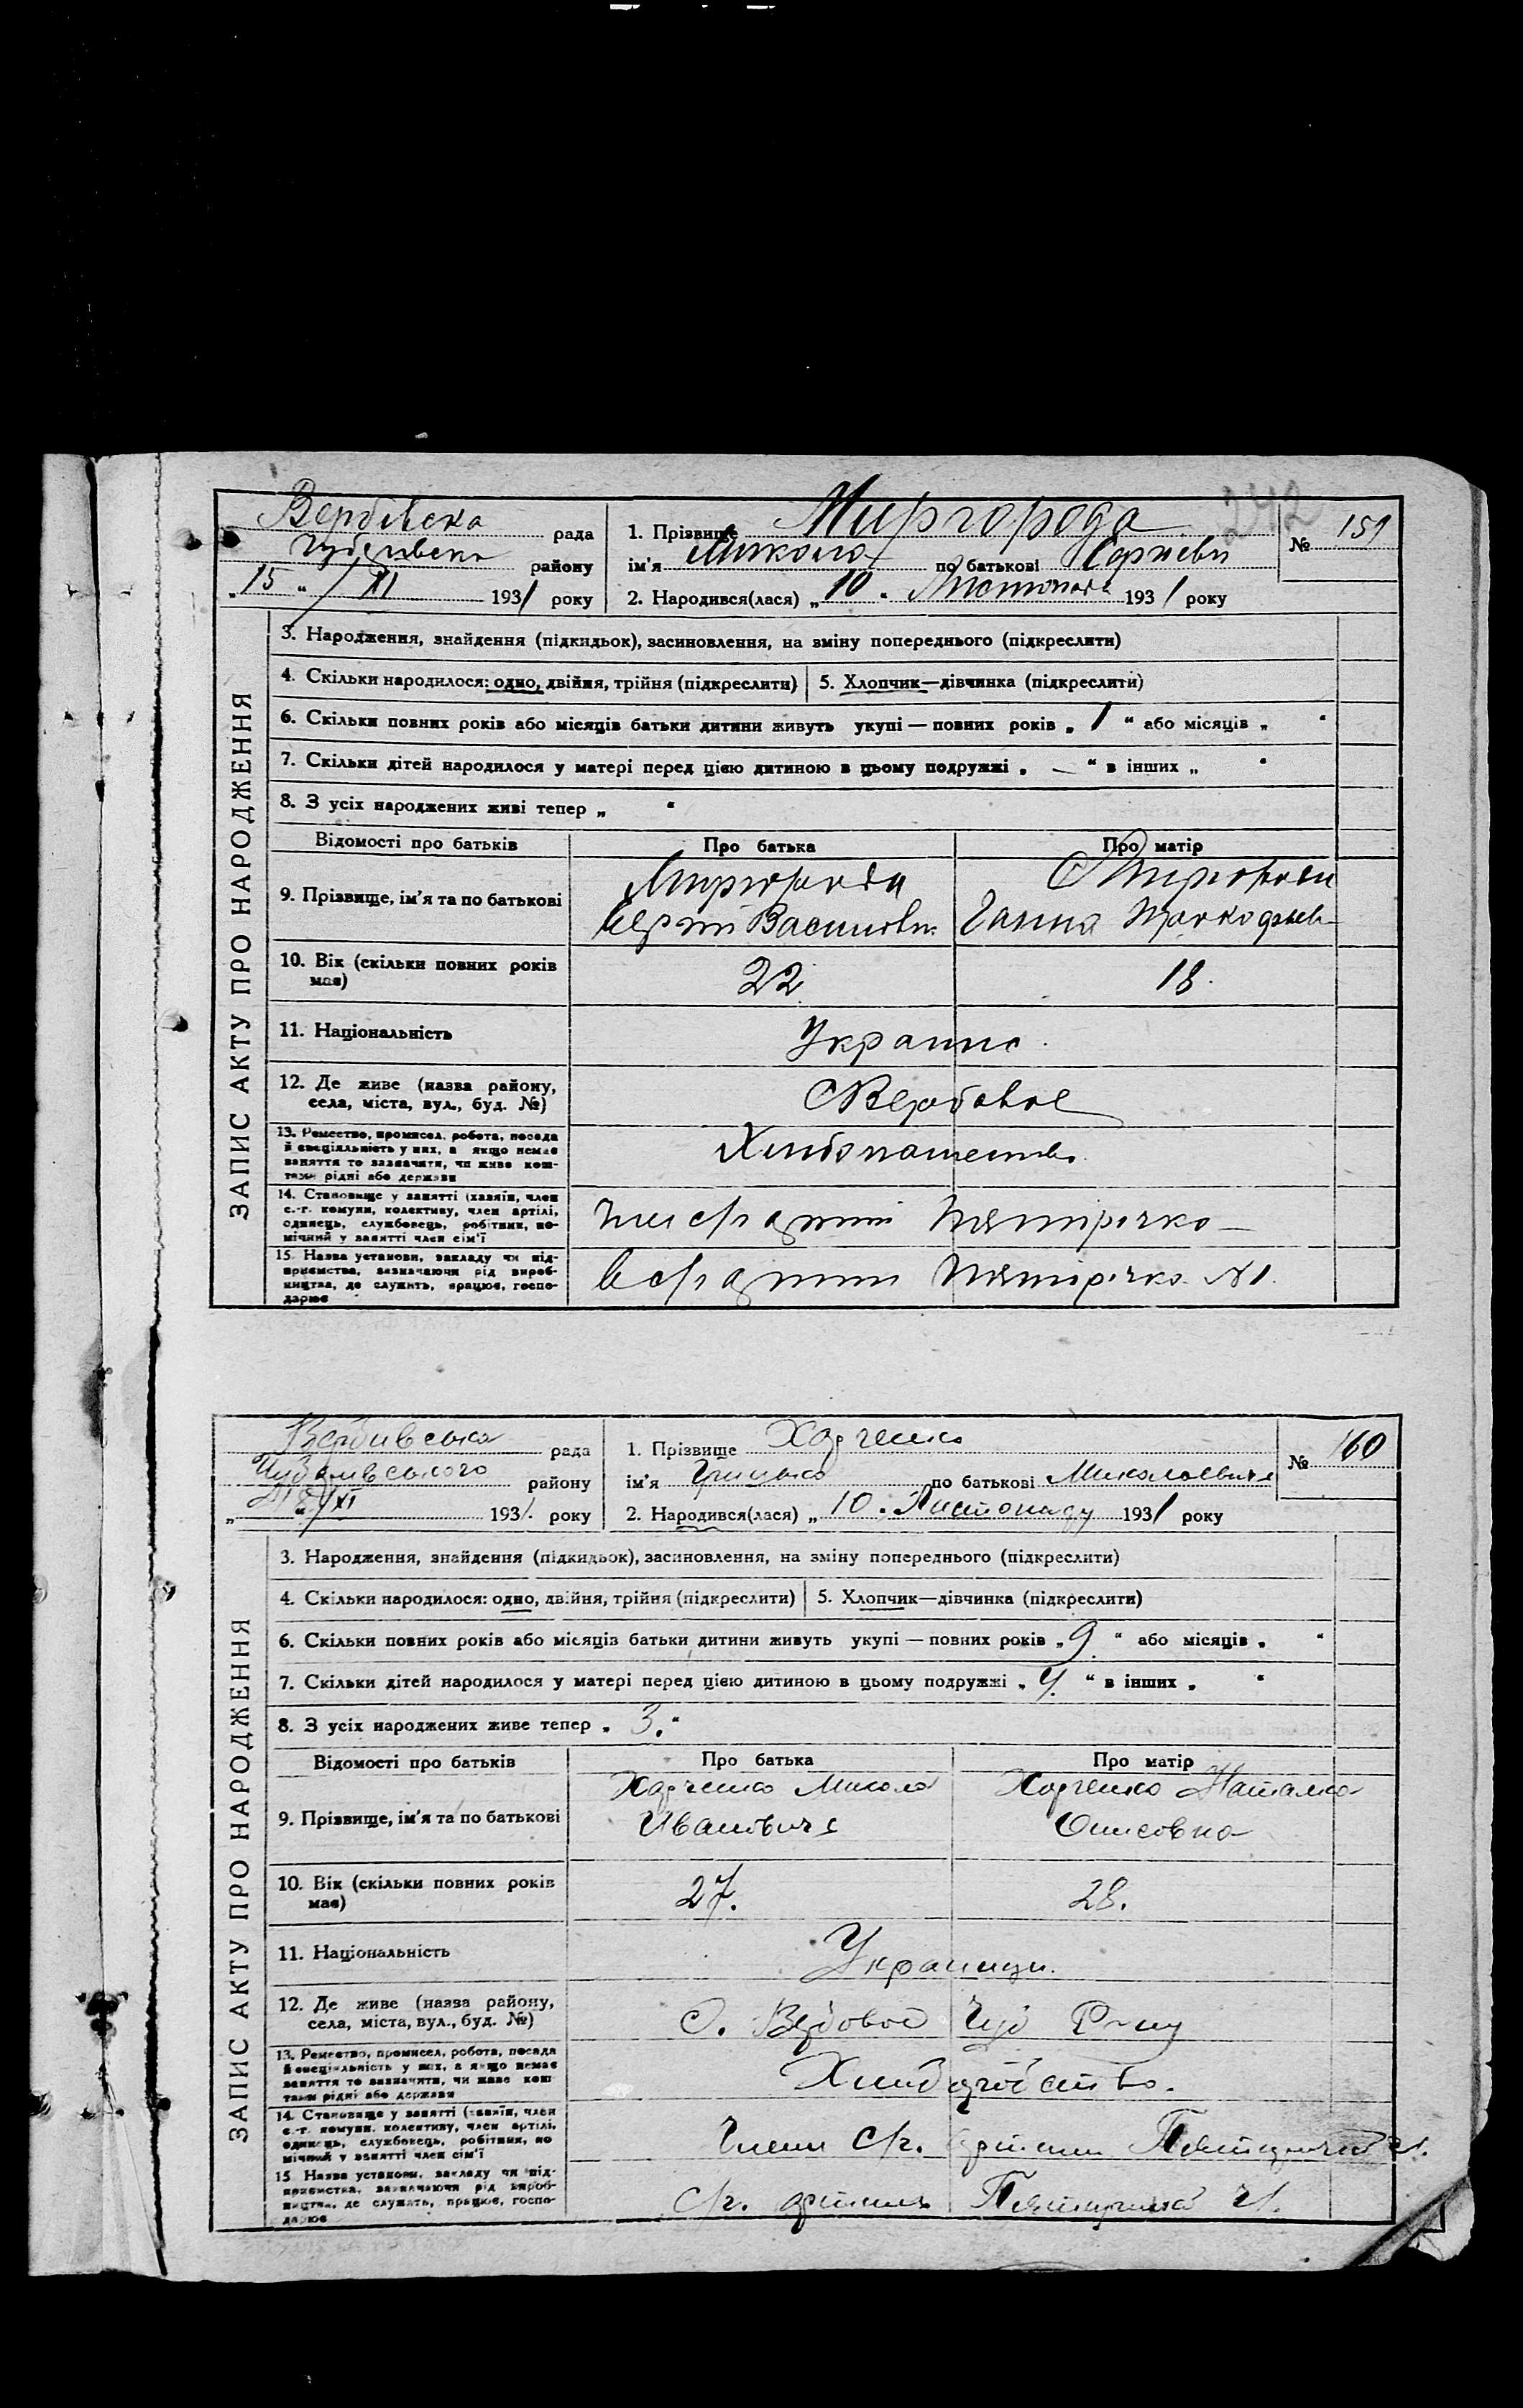 242
Вербівска рада
району
„15 “ / XI 1931 року
1. Прізвище Миргорода
ім'я Микола по батькові Сергиеви
2. Народився(лася) „ 10 “ Листопада 1931 року
№ 159
ЗАПИС АКТУ ПРО НАРОДЖЕННЯ
3. Народження, знайдення (підкидьок), засиновлення, на зміну попереднього (підкреслити)
4. Скільки народилося: одно, двійня, трійня (підкреслити) 5. Хлопчик—дівчинка (підкреслити)
6. Скільки повних років або місяців батьки дитини живуть укупі — повних років „ 1 “ або місяців „ “
7. Скільки дітей народилося у матері перед цією дитиною в цьому подружжі „ — “ в інших „ “
8. З усіх народжених живі тепер „ “
Відомості про батьків Про батька Про матір
9. Прізвище, ім'я та по батькові Миргорода Миргорода
Сергій Василови Ганна
10. Вік (скільки повних років має) 22 18.
11. Національність Украинс.
12. Де живе (назва району, села, міста, вул., буд. №) С Вербовое
13. Ремество, промисел, робота, посада й спеціяльність у них, а якщо немає заняття то зазначити, чи живе коштами рідні або держави
14. Становище у занятті (хазяїн, член с.-г. комуни, колективу, член артілі, одинець, службовець, робітник, помічний у занятті член сім'ї
15. Назва установи, закладу чи підприємства, зазначаючи рід виробництва, де служить, працює, господарює №1.
Вербивська рада
Чубаривського району
„ “ /XI 1931. року
1. Прізвище Харченко
ім'я Грицько по батькові Миколаевичъ
2. Народився(лася) „ 10 “ Листопаду 1931 року
№ 160
ЗАПИС АКТУ ПРО НАРОДЖЕННЯ
3. Народження, знайдення (підкидьок), засиновлення, на зміну попереднього (підкреслити)
4. Скільки народилося: одно, двійня, трійня (підкреслити) 5. Хлопчик—дівчинка (підкреслити)
6. Скільки повних років або місяців батьки дитини живуть укупі — повних років „ 9. “ або місяців „ “
7. Скільки дітей народилося у матері перед цією дитиною в цьому подружжі „ 4. “ в інших „ “
8. З усіх народжених живе тепер „ 3. “
Відомості про батьків Про батька Про матір
9. Прізвище, ім'я та по батькові Харченко Микола Харченко Наталка
Ивановичъ
10. Вік (скільки повних років має) 27. 28.
11. Національність Украинци.
12. Де живе (назва району, села, міста, вул., буд. №) С. Вербовое Чуб Р-ну
13. Ремество, промисел, робота, посада й спеціяльність у них, а якщо немає заняття то зазначити, чи живе коштами рідні або держави
14. Становище у занятті (хазяїн, член с.-г. комуни, колективу, член артілі, одинець, службовець, робітник, помічний у занятті член сім'ї Члени с/г.
15. Назва установи, закладу чи підприємства, зазначаючи рід виробництва, де служить, працює, господарює с/г.